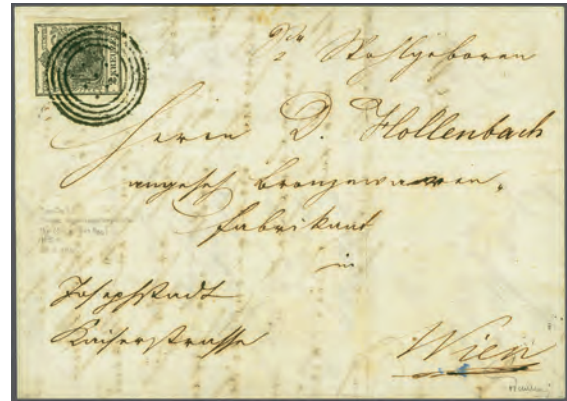 Wohlgeboren
Herrn D. Hollenbach
angeseh Bronzewaaren-
Fabrikant
in
Josephstadt
Kaiserstrasse
Wien